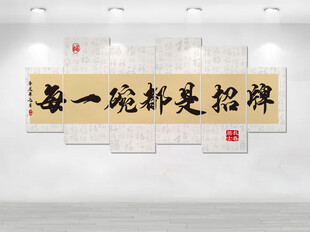 每一碗都是招牌